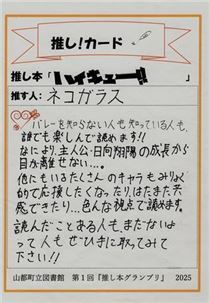 推し!カード
推し本「ハイキュー!!」
推す人:ネコガラス
バレーを知らない人も知っている人も、
誰でも楽しんで読めます!!
なにより、主人公・日向翔陽の成長から
目が離せない…。
他にもいるたくさんのキャラもみりょく
的で応援したくなったり、はたまた共
感できたり…色んな視点で読めます。
読んだことある人も、まだないよ
って人もぜひ手に取ってみて
下さい!!
山都町立図書館 第1回『推し本グランプリ』 2025